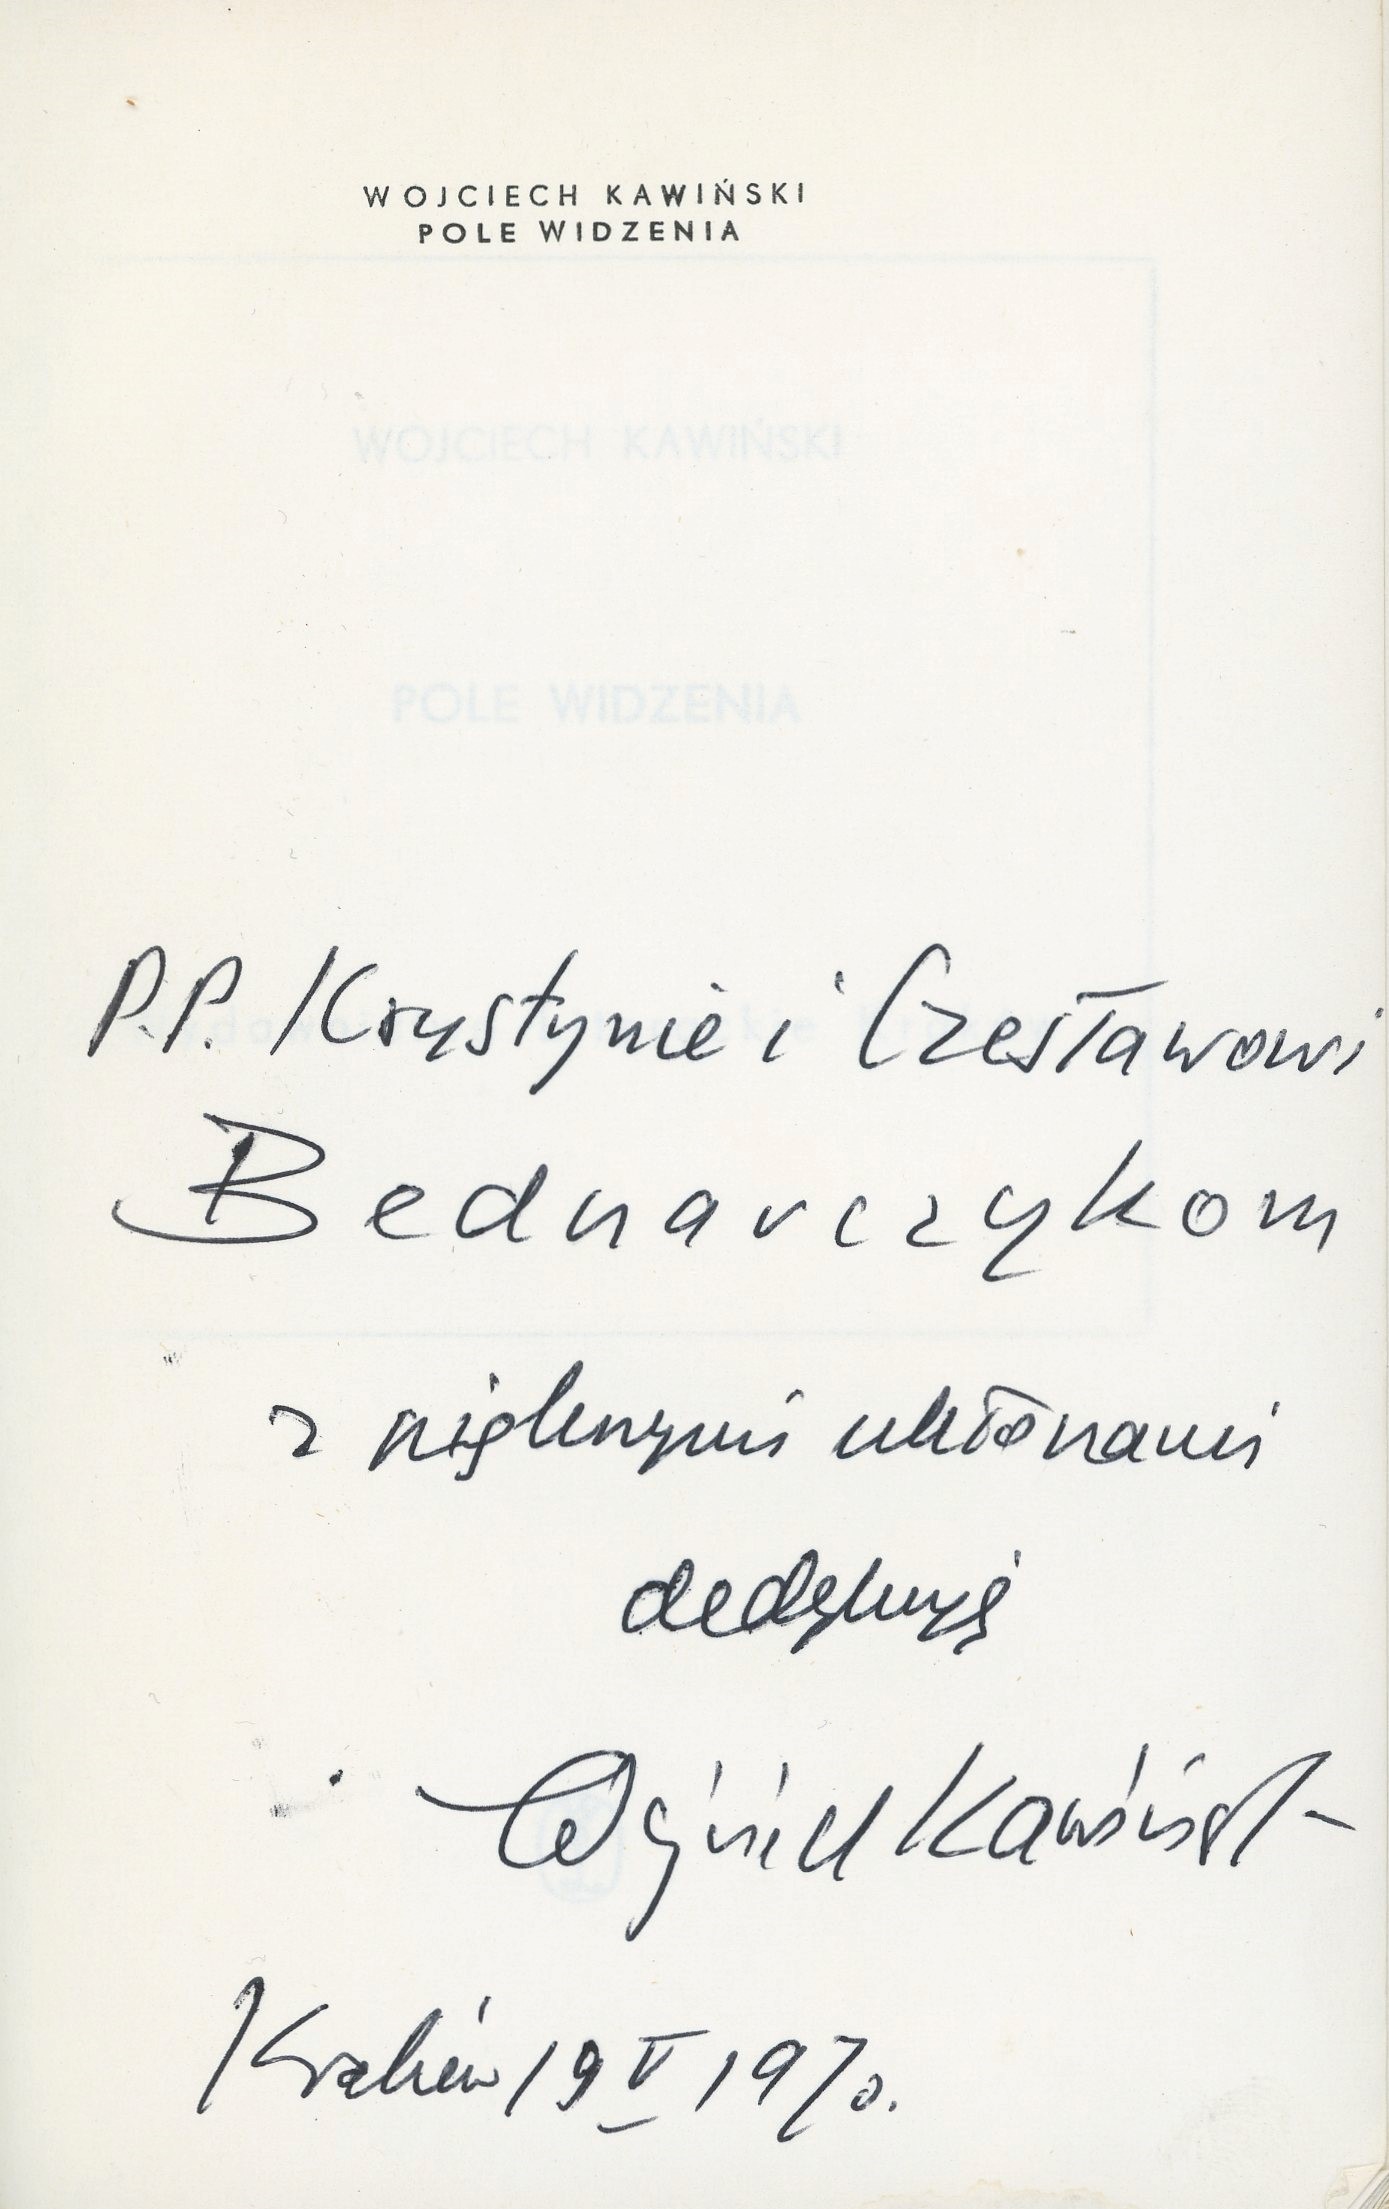 WOJCIECH KAWIŃSKI
POLE WIDZENIA
WOJCIECH KAWIŃSKI
POLE WIDZENIA
P.P. Krystynie i Czesławowi
Bednarczykom
z pięknymi ukłonami
dedykuję
Wojciech Kawiński
Kraków 19 V 1970.